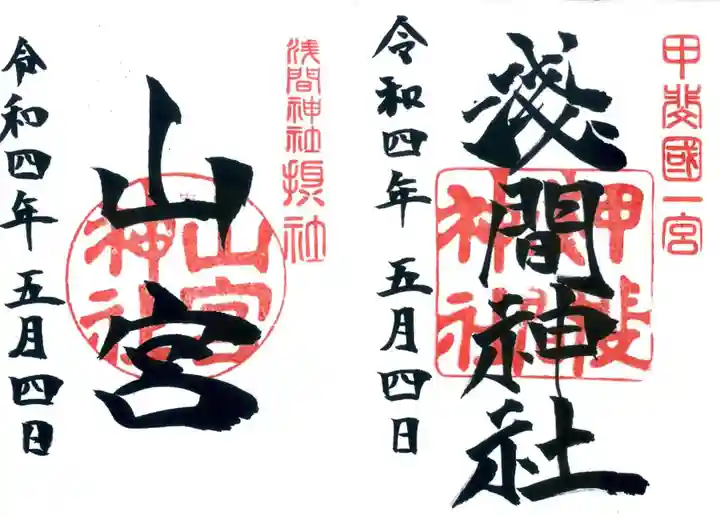 甲斐國一宮
淺間神社
令和四年五月四日
浅間神社摂社
山宮
山宮神社
令和四年五月四日